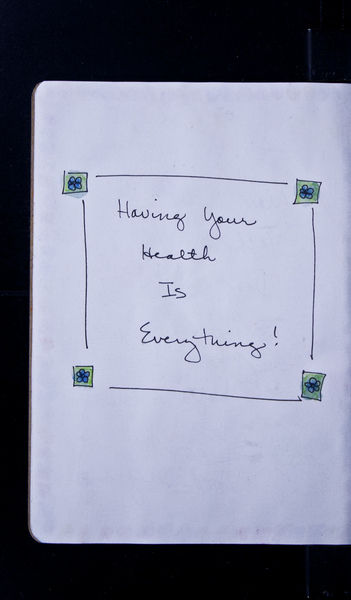 Having Your
Health
Is
Everything!